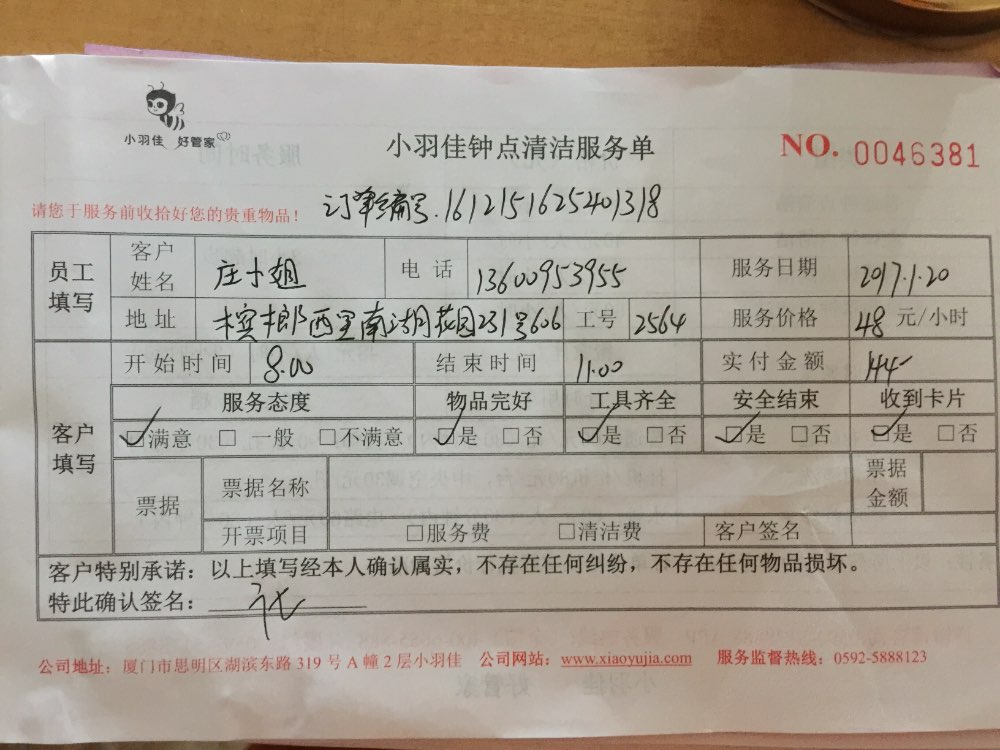 小羽佳 好管家
小羽佳钟点清洁服务单
NO. 0046381
请您于服务前收拾好您的贵重物品！ 订单编号.1612151625401318
员工填写 客户姓名 庄小姐 电话 13600953955 服务日期 2017.1.20
地址 槟榔西里南湖花园231号606 工号 2564 服务价格 48 元/小时
客户填写 开始时间 8.00 结束时间 11.00 实付金额 144-
服务态度 物品完好 工具齐全 安全结束 收到卡片
☑满意 □一般 □不满意 ☑是 □否 ☑是 □否 ☑是 □否 ☑是 □否
票据 票据名称 票据金额
开票项目 □服务费 □清洁费 客户签名
客户特别承诺：以上填写经本人确认属实，不存在任何纠纷，不存在任何物品损坏。
特此确认签名：
公司地址：厦门市思明区湖滨东路 319 号 A 幢 2 层小羽佳 公司网站：www.xiaoyujia.com 服务监督热线：0592-5888123